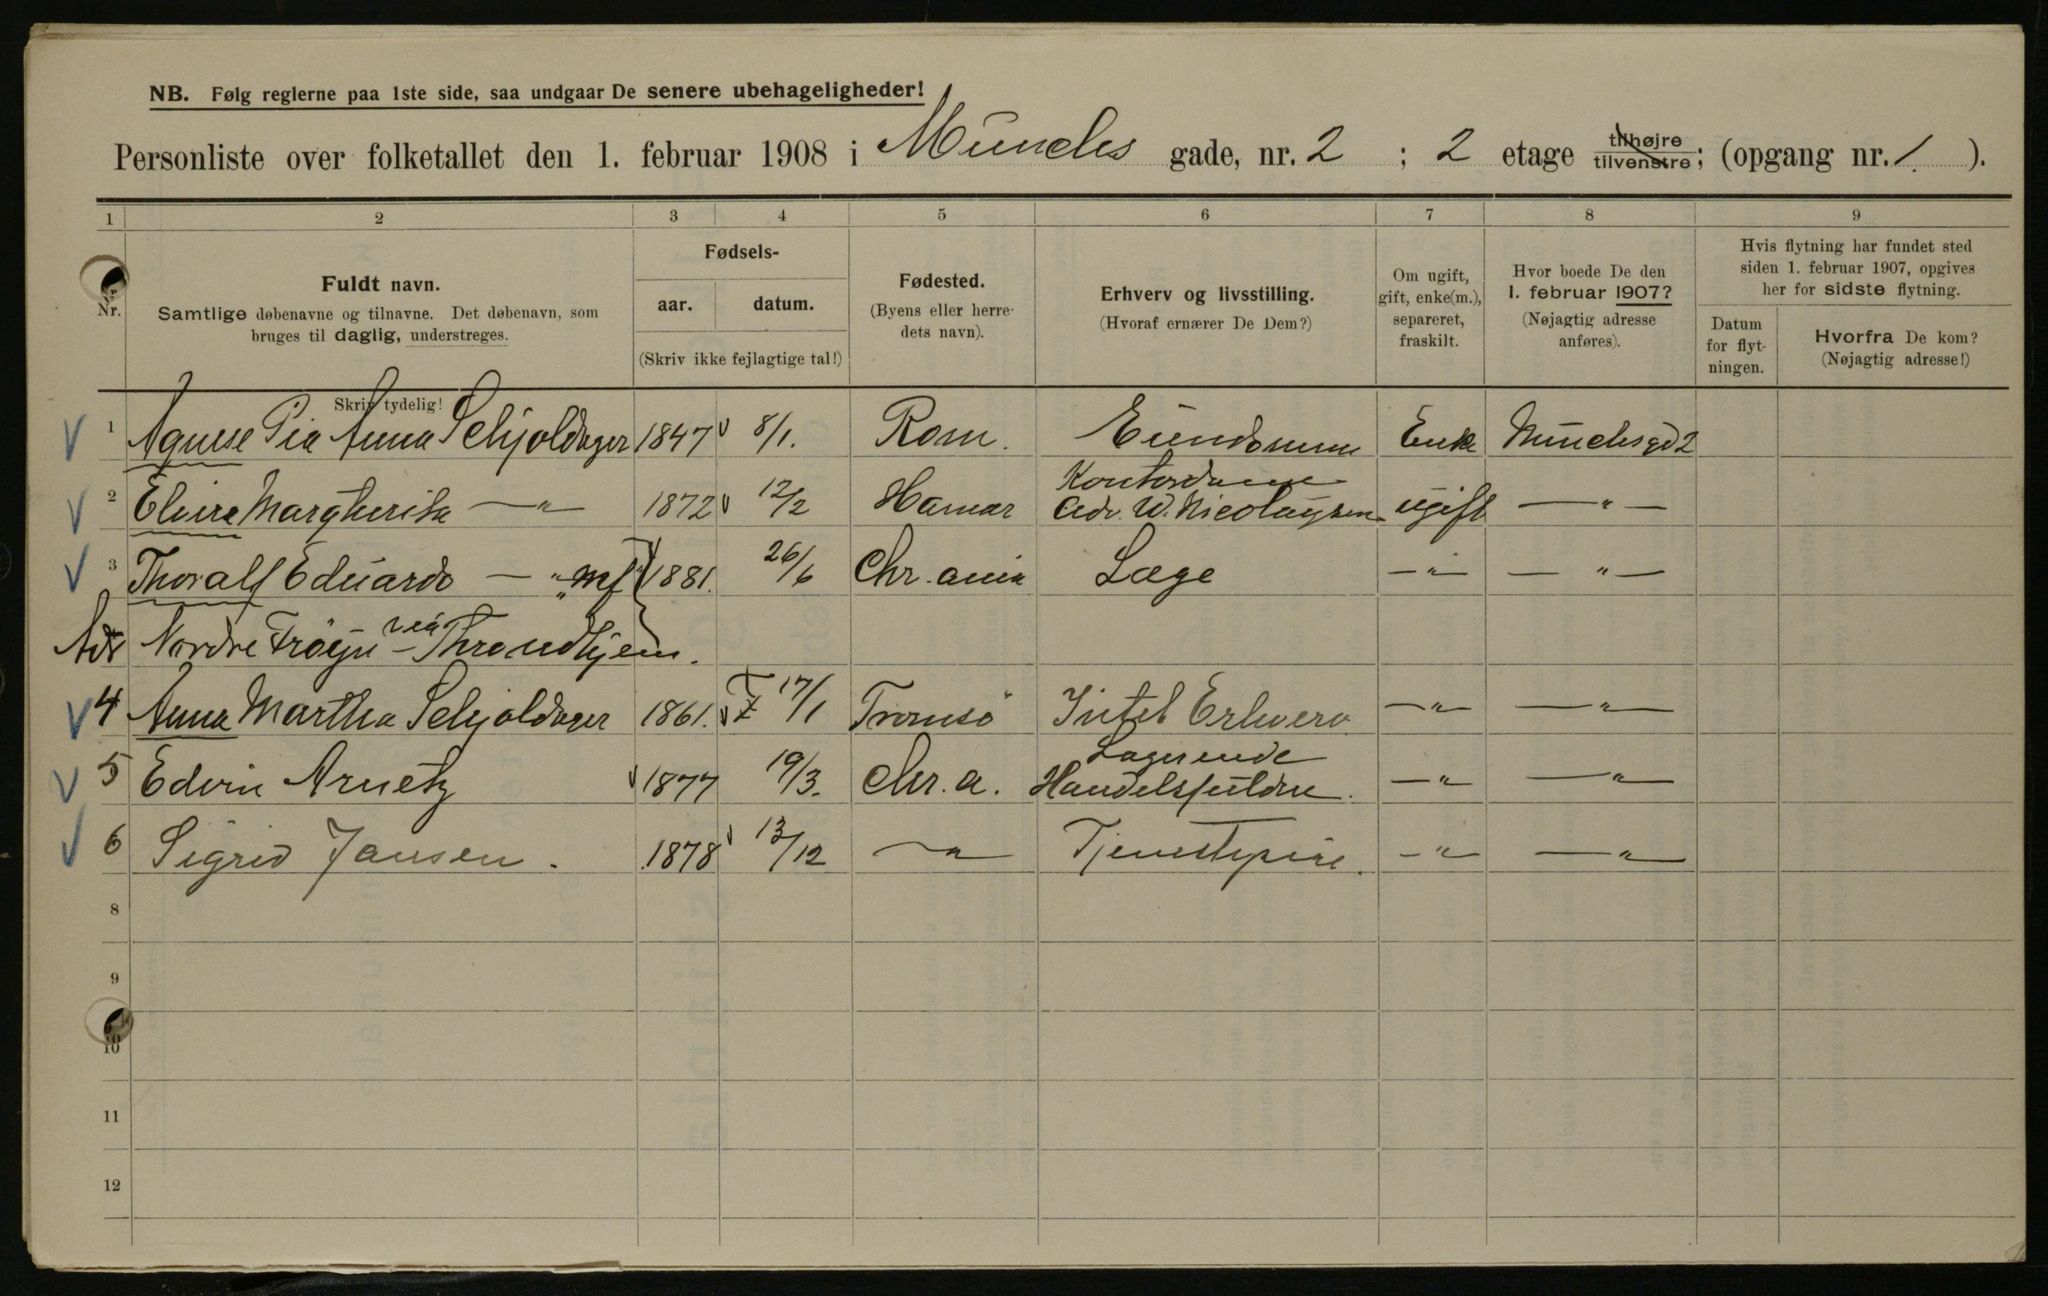 NB. Følg reglerne paa 1ste side, saa undgaar De senere ubehageligheder!
Personliste over folketallet den 1. februar 1908 i Munchs gade, nr. 2 ; 2 etage tilhøjre tilvenstre; (opgang nr. 1. ).
1 2 3 4 5 6 7 8 9
Nr.
Fuldt navn.
Samtlige døbenavne og tilnavne. Det døbenavn, som
bruges til daglig, understreges.
Skriv tydelig!
Fødsels-
aar. datum.
(Skriv ikke fejlagtige tal!)
Fødested.
(Byens eller herre-
dets navn).
Erhverv og livsstilling.
(Hvoraf ernærer De Dem?)
Om ugift,
gift, enke(m.),
separeret,
fraskilt.
Hvor boede De den
1. februar 1907?
(Nøjagtig adresse
anføres).
Hvis flytning har fundet sted
siden 1. februar 1907, opgives
her for sidste flytning.
Datum
for flyt-
ningen.
Hvorfra De kom?
(Nøjagtig adresse!)
1 Agnese Pia Anna Schjoldager 1847 8/1. Rom. Enke Munchsgd 2
2 Margherita —"— 1872 12/2 Hamar Kontordame
Adv. W. Nicolaysen ugift —"—
3 Thoralf Eduardo —"— "mf" 1881. 26/6 Chr.ania Læge —"— —"—
Adr Nordre Frøyn via Throndhjem.
4 Anna Martha Schjoldager 1861. 17/1 Tromsø Intet Erhverv —"— —"—
5 Edvin Arnetz 1877 19/3. Chr.a. —"— —"—
6 Sigrid Jansen. 1878 13/12 —"— Tjenestepige. —"— —"—
8
9
10
11
12